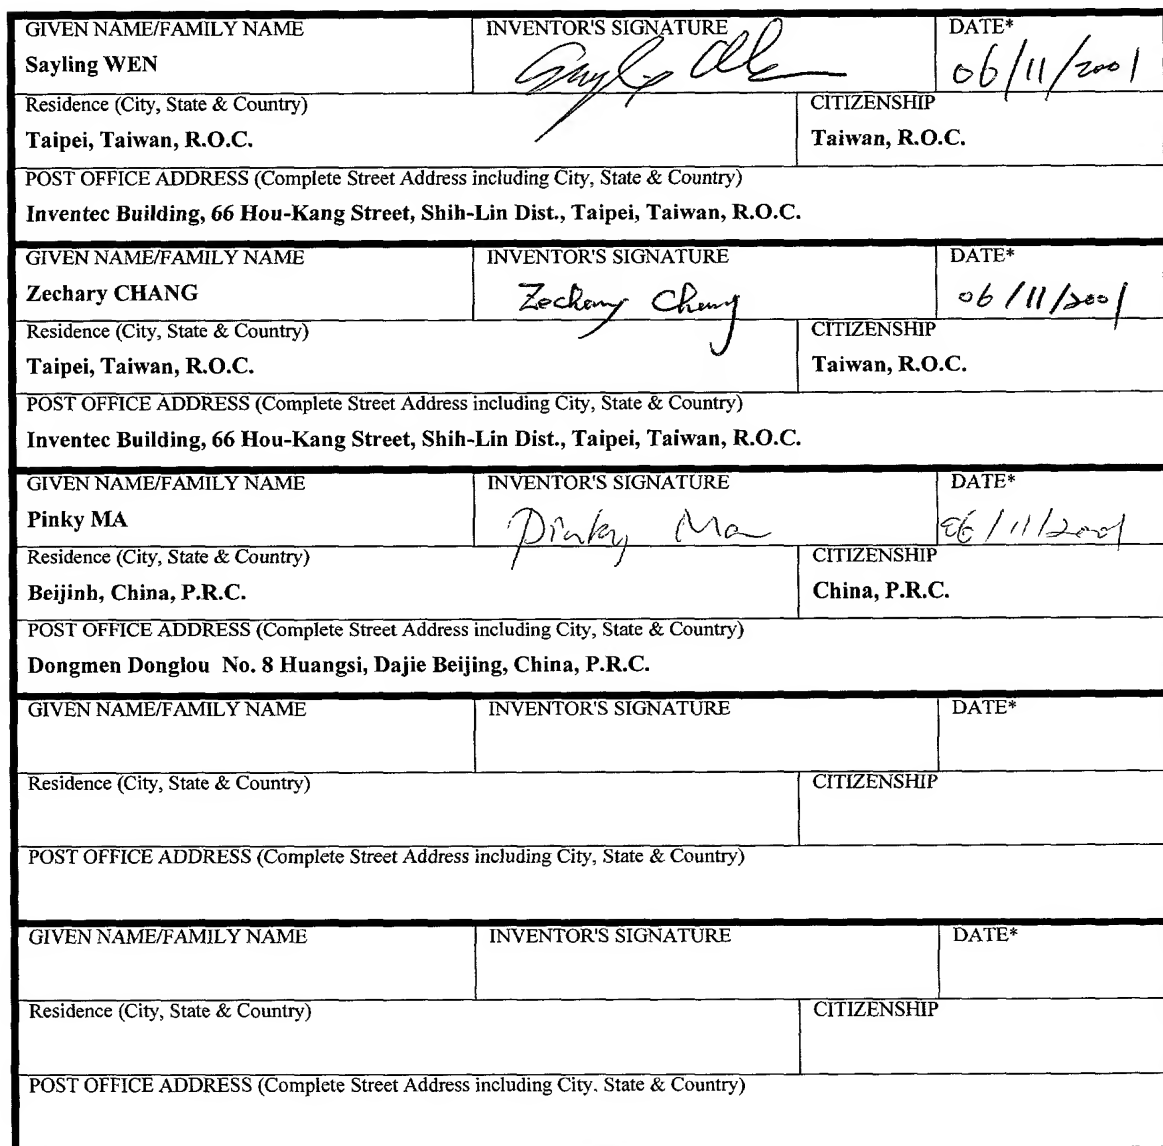 GIVEN NAME/FAMILY NAME INVENTOR'S SIGNATURE DATE*
Sayling WEN 06/11/2001
Residence (City, State & Country) CITIZENSHIP
Taipei, Taiwan, R.O.C. Taiwan, R.O.C.
POST OFFICE ADDRESS (Complete Street Address including City, State & Country)
Inventec Building, 66 Hou-Kang Street, Shih-Lin Dist., Taipei, Taiwan, R.O.C.
GIVEN NAME/FAMILY NAME INVENTOR'S SIGNATURE DATE*
Zechary CHANG Zechary Chang 06/11/2001
Residence (City, State & Country) CITIZENSHIP
Taipei, Taiwan, R.O.C. Taiwan, R.O.C.
POST OFFICE ADDRESS (Complete Street Address including City, State & Country)
Inventec Building, 66 Hou-Kang Street, Shih-Lin Dist., Taipei, Taiwan, R.O.C.
GIVEN NAME/FAMILY NAME INVENTOR'S SIGNATURE DATE*
Pinky MA Pinky Ma 06/11/2001
Residence (City, State & Country) CITIZENSHIP
Beijinh, China, P.R.C. China, P.R.C.
POST OFFICE ADDRESS (Complete Street Address including City, State & Country)
Dongmen Donglou No. 8 Huangsi, Dajie Beijing, China, P.R.C.
GIVEN NAME/FAMILY NAME INVENTOR'S SIGNATURE DATE*
Residence (City, State & Country) CITIZENSHIP
POST OFFICE ADDRESS (Complete Street Address including City, State & Country)
GIVEN NAME/FAMILY NAME INVENTOR'S SIGNATURE DATE*
Residence (City, State & Country) CITIZENSHIP
POST OFFICE ADDRESS (Complete Street Address including City, State & Country)